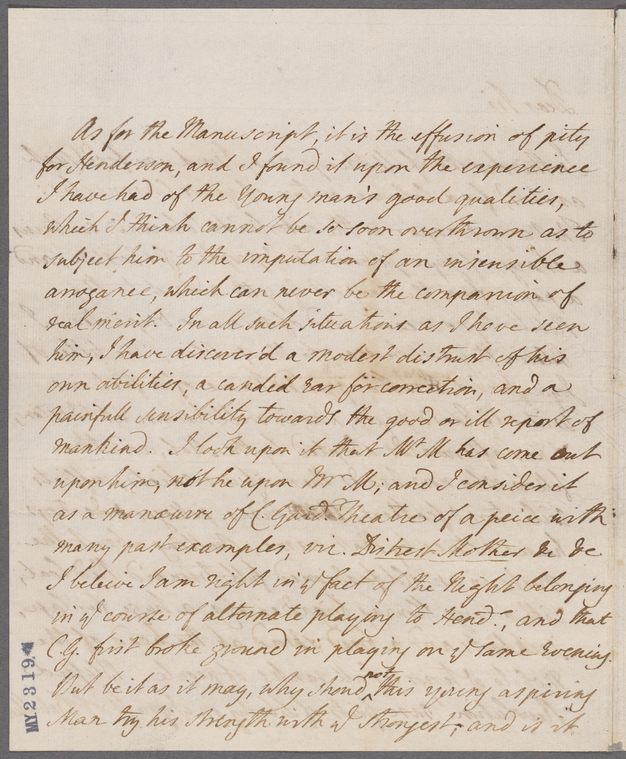 As for the Manuscript, it is the effusion of pity
for Henderson, and I found it upon the experience
I have had of the Young man's good qualities,
which I think cannot be so soon overthrown as to
subject him to the imputation of an insensible
arrogance, which can never be the companion of
real merit. In all such situations as I have seen
him, I have discover'd a modest distrust of his
own abilities, a candid ear for correction, and a
painfull sensibility towards the good or ill report of
mankind. I look upon it that Mr M has come out
upon him, not he upon Mr M; and I consider it
as a manœuvre of C. Gard: Theatre of a peice with
many past examples, viz. Distrest Mother &c &c
I beleive I am right in ye fact of the Night belonging
in ye course of alternate playing to Hend:n, and that
C.G. first broke ground in playing on ye same Evening.
But be it as it may, why shoud not this young aspiring
Man try his strength with ye strongest; and is it
MY2319